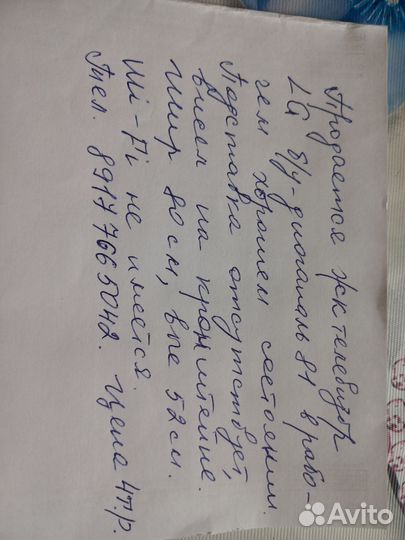 Продается жк телевизор
LG б/у-диагональ 81 в рабо-
чем хорошем состоянии.
Подставка отсутствует,
висел на кронштейне.
Шир 80 см, выс 52 см.
Wi-Fi не имеется.
Тел. 89177665042. Цена 4т.р.
Avito